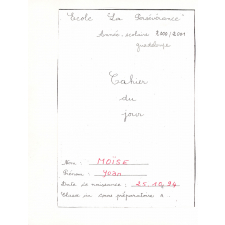 "Ecole La Persévérance"
Année scolaire 2000/2001
guadeloupe
Cahier
du
jour
Nom : MOÏSE
Prénom : Yvan
Date de naissance : 25.10.94
Classe in cours préparatoire